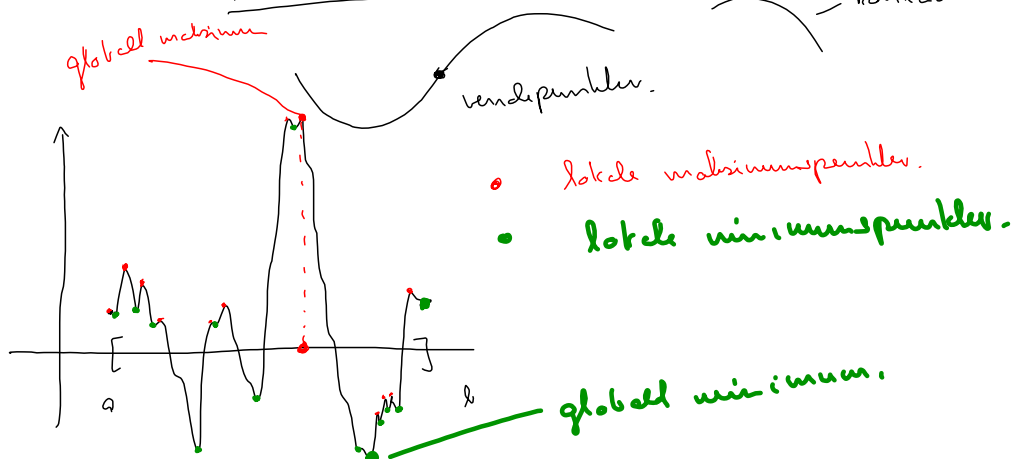 globalt maksimum
vendepunkter.
lokale maksimumspunkter.
lokale minimumspunkter.
[ ]
a b
globalt minimum.